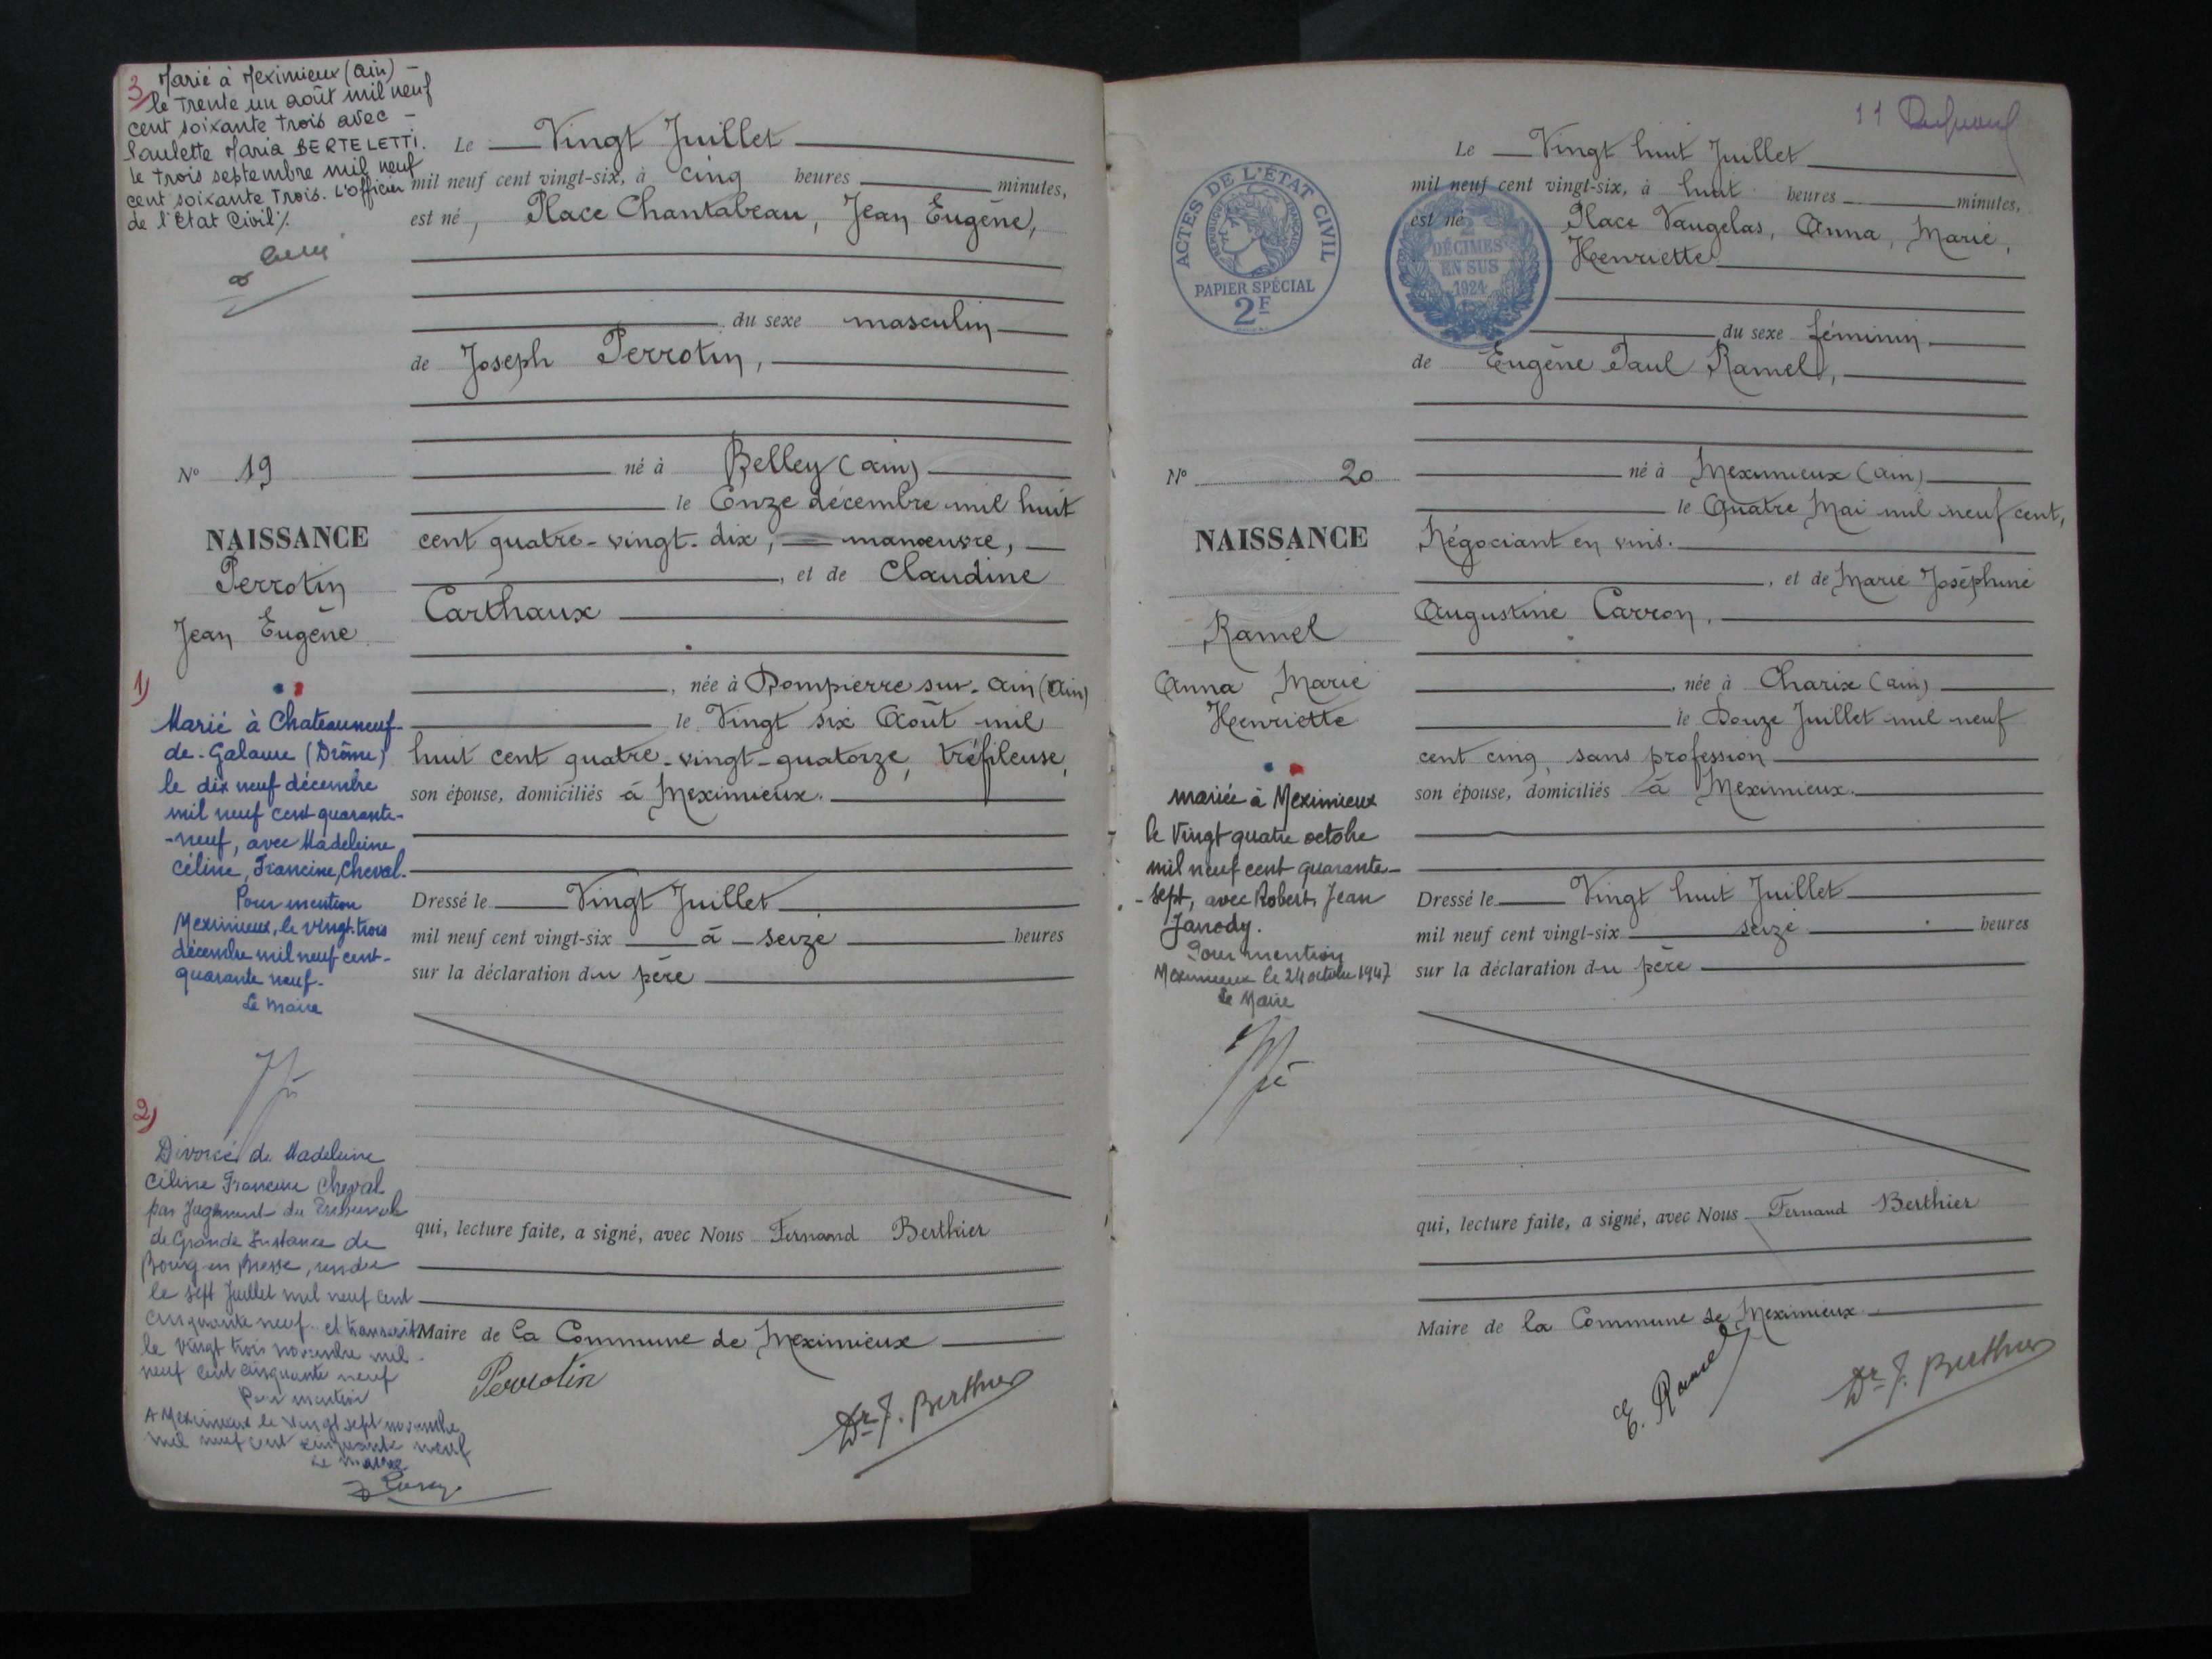 3 Marié à Meximieux (Ain) -
le trente un août mil neuf
cent soixante trois avec -
Paulette Maria BERTELETTI.
le trois septembre mil neuf
cent soixante trois. L'Officier
de l'Etat Civil ./.
N° 19
NAISSANCE
Perrotin
Jean Eugène
1)
Marié à Chateauneuf-
de-Galaure (Drôme)
le dix neuf décembre
mil neuf cent quarante-
-neuf, avec Madeleine
Céline, Francine, Cheval.
Pour mention
Meximieux, le vingt-trois
décembre mil neuf cent-
quarante neuf.
Le Maire
2)
Divorcé de Madeleine
Céline Francine Cheval
par Jugement du Tribunal
de Grande Instance de
Bourg en Bresse, rendu
le sept Juillet mil neuf cent
cinquante neuf et transcrit
le vingt trois novembre mil
neuf cent cinquante neuf
Pour mention
A Meximieux le vingt sept novembre
mil neuf cent cinquante neuf
Le Maire
Le Vingt Juillet
mil neuf cent vingt-six, à cinq heures minutes,
est né, Place Chantabeau, Jean Eugène,
du sexe masculin
de Joseph Perrotin,
né à Belley (Ain)
le Onze décembre mil huit
cent quatre-vingt-dix, manœuvre,
, et de Claudine
Carthaux
, née à Dompierre sur-Ain (Ain)
le Vingt six Août mil
huit cent quatre-vingt-quatorze, tréfileuse,
son épouse, domiciliés à Meximieux.
Dressé le Vingt Juillet
mil neuf cent vingt-six à seize heures
sur la déclaration du père
qui, lecture faite, a signé, avec Nous Fernand Berthier
Maire de la Commune de Meximieux
Perrotin
Dr F. Berthier
11
ACTES DE L'ÉTAT CIVIL
RÉPUBLIQUE FRANÇAISE
PAPIER SPÉCIAL
2F
2
DÉCIMES
EN SUS
1924
N° 20
NAISSANCE
Ramel
Anna Marie
Henriette
mariée à Meximieux
le Vingt quatre octobre
mil neuf cent quarante-
-sept, avec Robert, Jean
Janody.
Pour mention
Meximieux le 24 octobre 1947
Le Maire
Le Vingt huit Juillet
mil neuf cent vingt-six, à huit heures minutes,
est né Place Vaugelas, Anna, Marie,
Henriette
du sexe féminin
de Eugène Paul Ramel,
né à Meximieux (Ain)
le Quatre Mai mil neuf cent,
Négociant en vins.
, et de Marie Joséphine
Augustine Carron,
, née à Charix (Ain)
le Douze Juillet mil neuf
cent cinq, sans profession
son épouse, domiciliés à Meximieux.
Dressé le Vingt huit Juillet
mil neuf cent vingt-six seize heures
sur la déclaration du père
qui, lecture faite, a signé, avec Nous Fernand Berthier
Maire de la Commune de Meximieux
E. Ramel
Dr F. Berthier